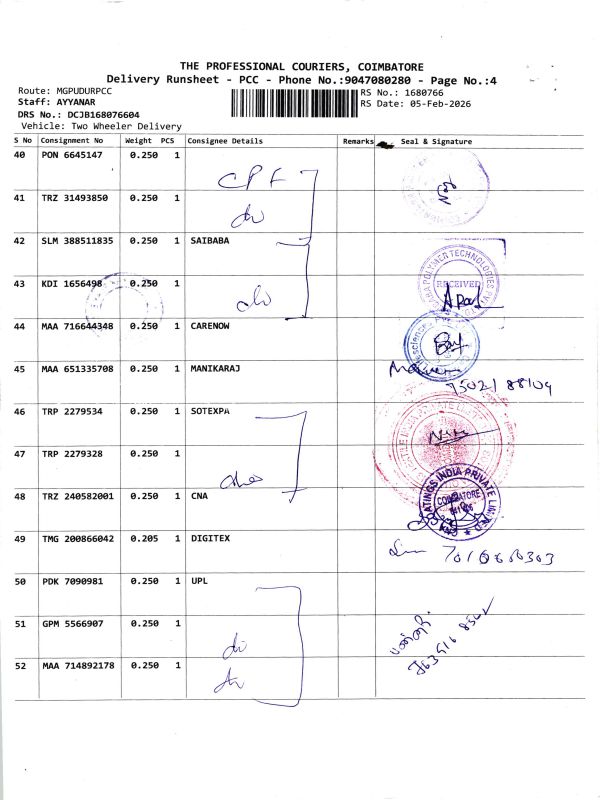 THE PROFESSIONAL COURIERS, COIMBATORE
Delivery Runsheet - PCC - Phone No.:9047080280 - Page No.:4
Route: MGPUDURPCC
Staff: AYYANAR
DRS No.: DCJB168076604
Vehicle: Two Wheeler Delivery
RS No.: 1680766
RS Date: 05-Feb-2026
S No Consignment No Weight PCS Consignee Details Remarks Seal & Signature
40 PON 6645147 0.250 1
CPF
41 TRZ 31493850 0.250 1
do
42 SLM 388511835 0.250 1 SAIBABA
43 KDI 1656498 0.250 1
do
RECEIVED
44 MAA 716644348 0.250 1 CARENOW
45 MAA 651335708 0.250 1 MANIKARAJ
46 TRP 2279534 0.250 1 SOTEXPA
47 TRP 2279328 0.250 1
48 TRZ 240582001 0.250 1 CNA
COATINGS INDIA PRIVATE LIMITED
COIMBATORE
49 TMG 200866042 0.205 1 DIGITEX
50 PDK 7090981 0.250 1 UPL
51 GPM 5566907 0.250 1
do
52 MAA 714892178 0.250 1
do